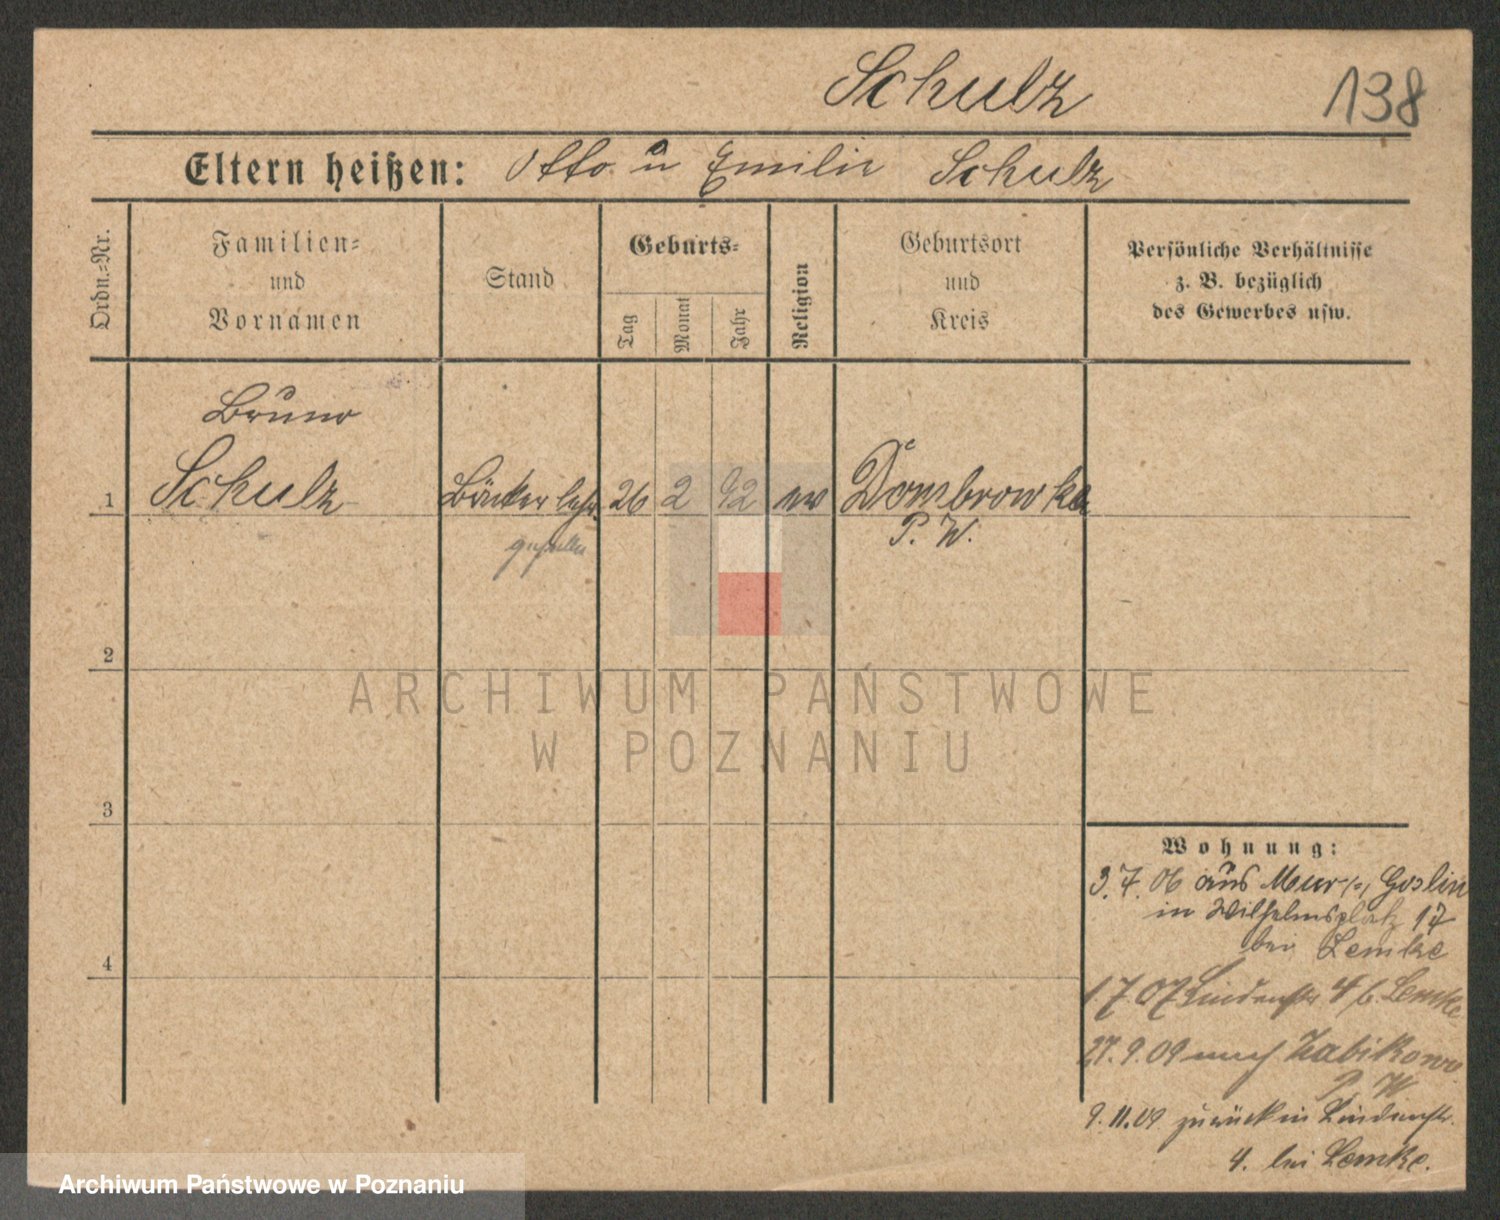 Schulz
138
Eltern heißen: Otto u Emilie Schulz
Ordn.-Nr.
Familien-
und
Vornamen
Stand
Geburts-
Tag
Monat
Jahr
Religion
Geburtsort
und
Kreis
Persönliche Verhältnisse
z. B. bezüglich
des Gewerbes usw.
Bruno
1 Schulz Bäckerlehr. 26 2 92 ev Dombrowka
geselle P. W.
2
ARCHIWUM PAŃSTWOWE
W POZNANIU
3
Wohnung:
3.7.06 aus Mur. Goslin
in Wilhelmsplatz 17
bei Lemke
4
1 7 07 Lindenstr. 4 b. Lemke
27.9.09 nach Zabikowo
P W
9.11.09 zurück in Lindenstr.
4. bei Lemke.
Archiwum Państwowe w Poznaniu